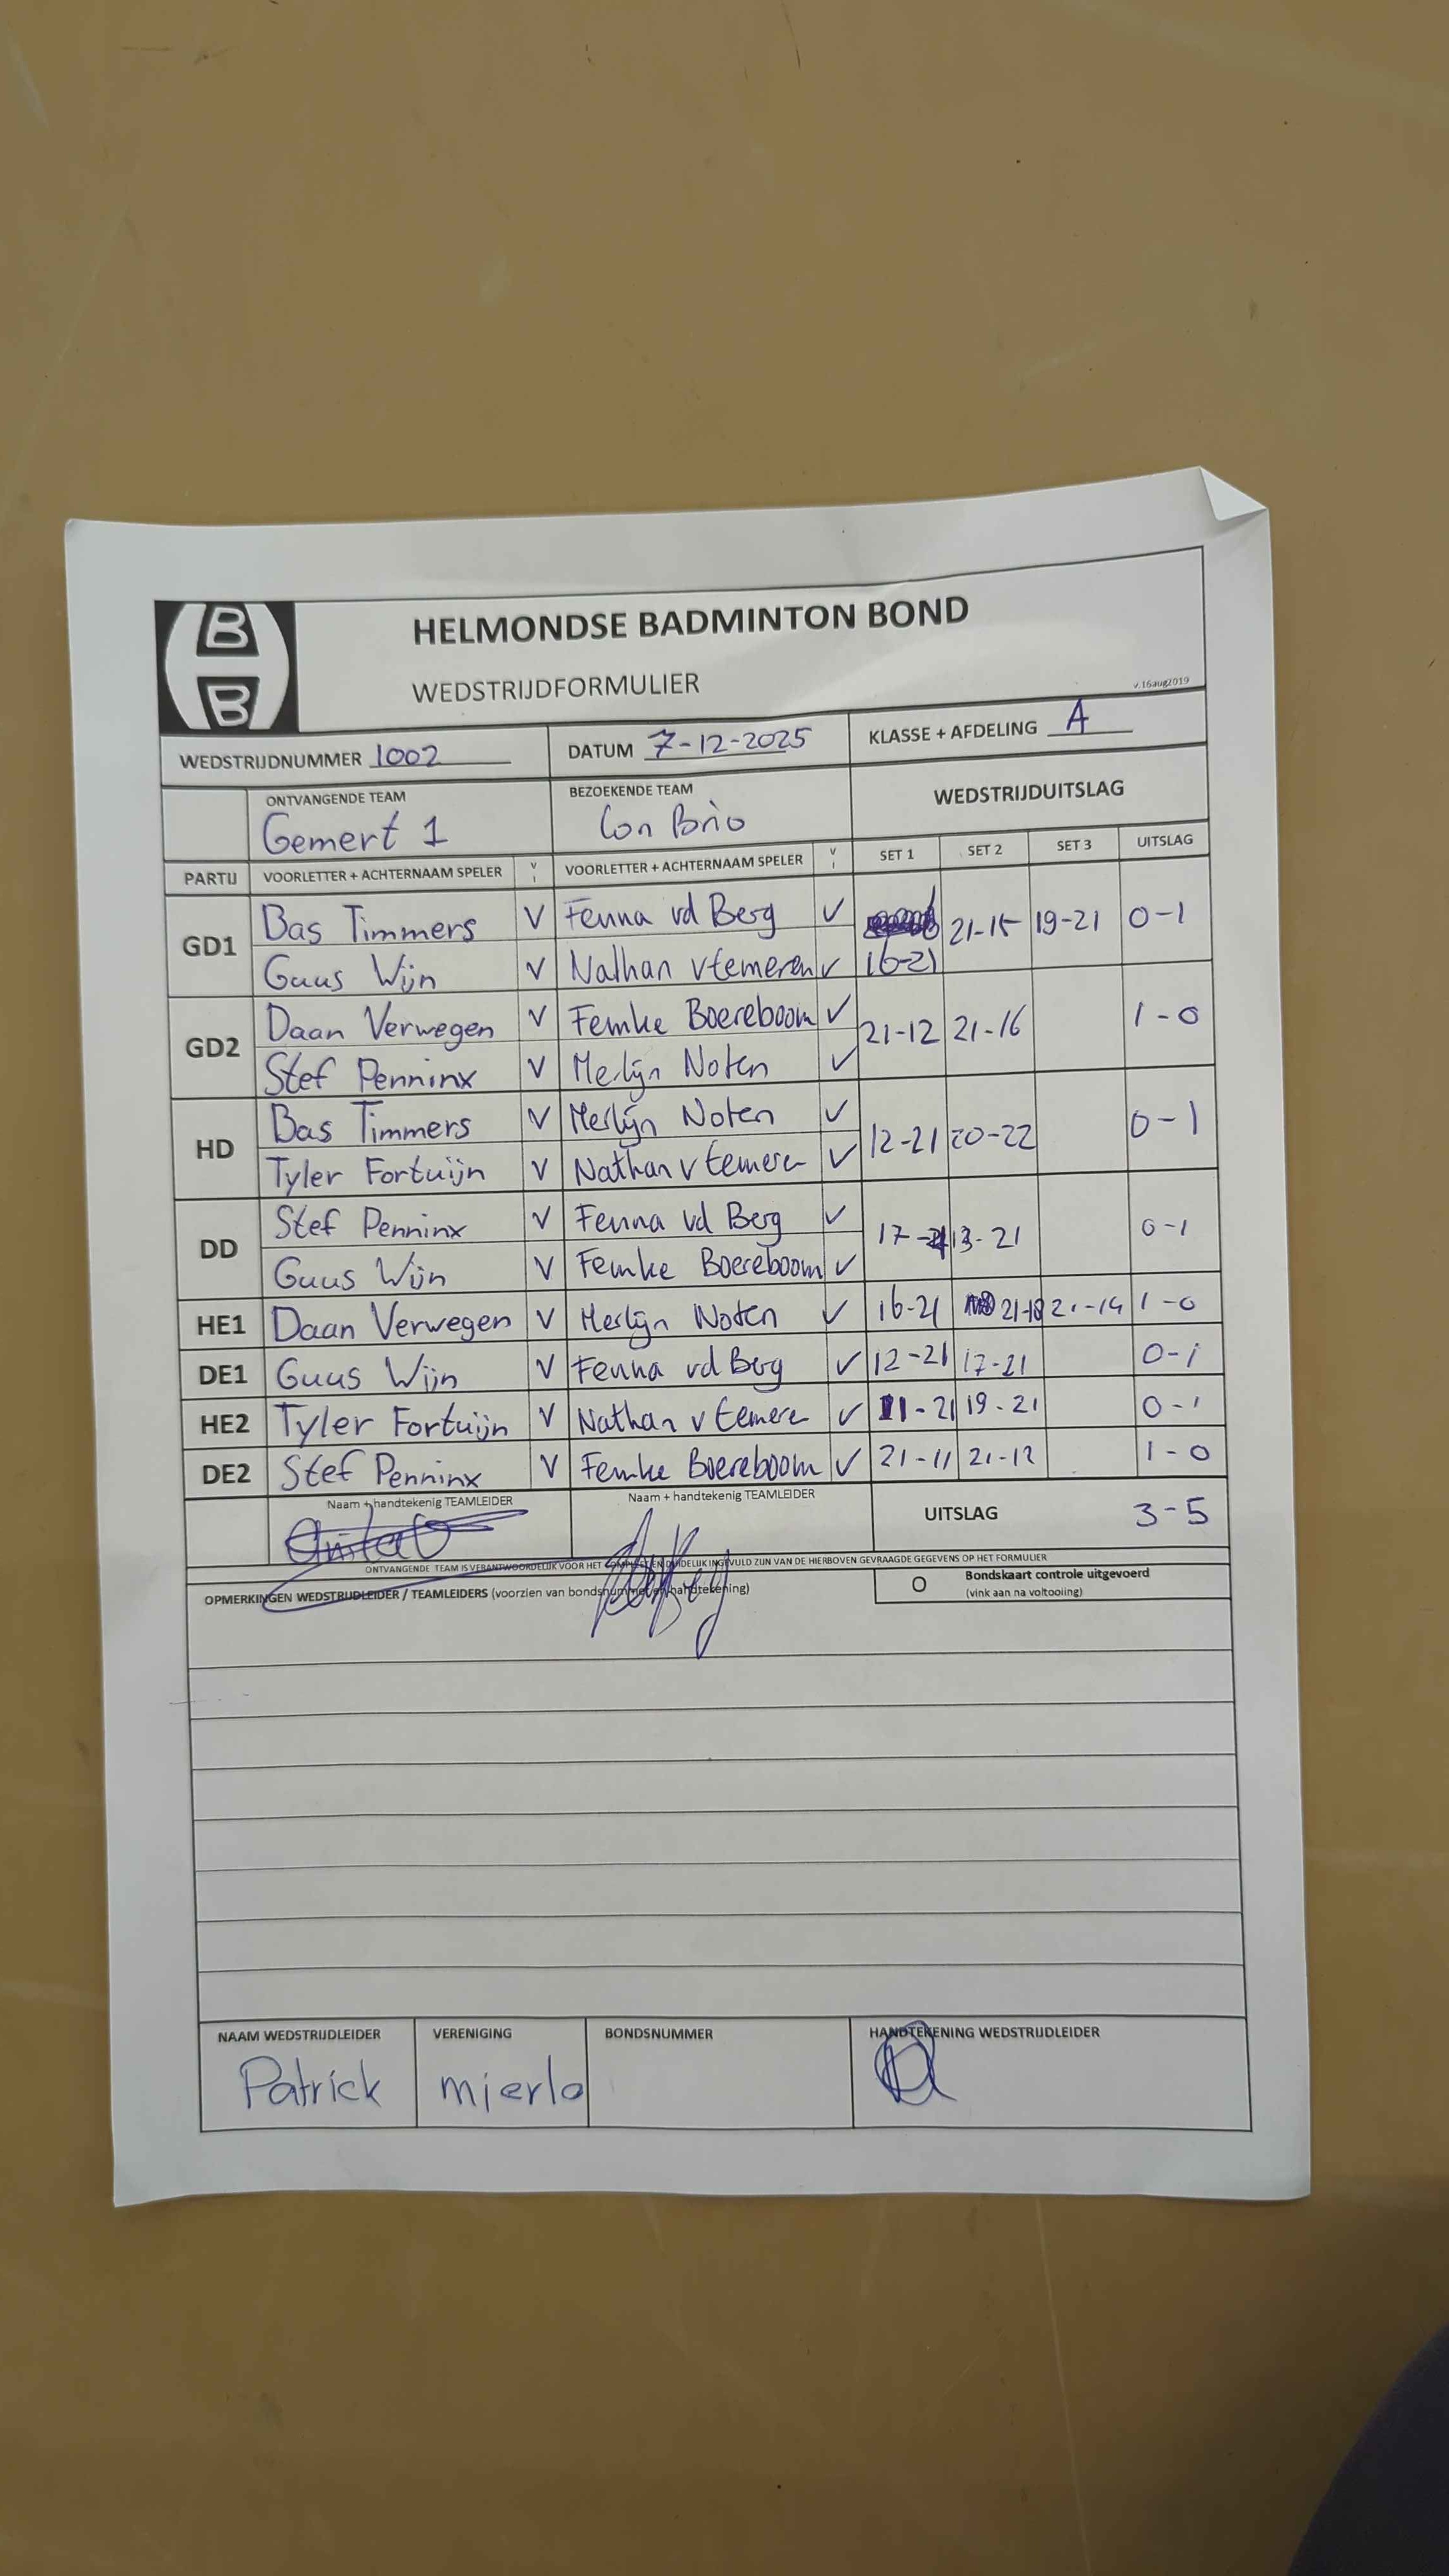 B
B
HELMONDSE BADMINTON BOND
WEDSTRIJDFORMULIER
v.16aug2019
WEDSTRIJDNUMMER 1002 DATUM 7-12-2025 KLASSE + AFDELING A
ONTVANGENDE TEAM BEZOEKENDE TEAM WEDSTRIJDUITSLAG
Gemert 1 Con Brio
PARTIJ VOORLETTER + ACHTERNAAM SPELER V I VOORLETTER + ACHTERNAAM SPELER V I SET 1 SET 2 SET 3 UITSLAG
GD1 Bas Timmers V Fenna vd Berg V 21-15 19-21 0-1
Guus Wijn V Nathan v Eemeren V 16-21
GD2 Daan Verwegen V Femke Boereboom V 21-12 21-16 1-0
Stef Penninx V Merlijn Noten V
HD Bas Timmers V Merlijn Noten V 12-21 20-22 0-1
Tyler Fortuijn V Nathan v Eemeren V
DD Stef Penninx V Fenna vd Berg V 17-21 13-21 0-1
Guus Wijn V Femke Boereboom V
HE1 Daan Verwegen V Merlijn Noten V 16-21 21-18 21-14 1-0
DE1 Guus Wijn V Fenna vd Berg V 12-21 17-21 0-1
HE2 Tyler Fortuijn V Nathan v Eemeren V 11-21 19-21 0-1
DE2 Stef Penninx V Femke Boereboom V 21-11 21-12 1-0
Naam + handtekenig TEAMLEIDER Naam + handtekenig TEAMLEIDER UITSLAG 3-5
ONTVANGENDE TEAM IS VERANTWOORDELIJK VOOR HET COMPLEET EN DUIDELIJK INGEVULD ZIJN VAN DE HIERBOVEN GEVRAAGDE GEGEVENS OP HET FORMULIER
OPMERKINGEN WEDSTRIJDLEIDER / TEAMLEIDERS (voorzien van bondsnummer en handtekening) O Bondskaart controle uitgevoerd
(vink aan na voltooiing)
NAAM WEDSTRIJDLEIDER VERENIGING BONDSNUMMER HANDTEKENING WEDSTRIJDLEIDER
Patrick mierlo